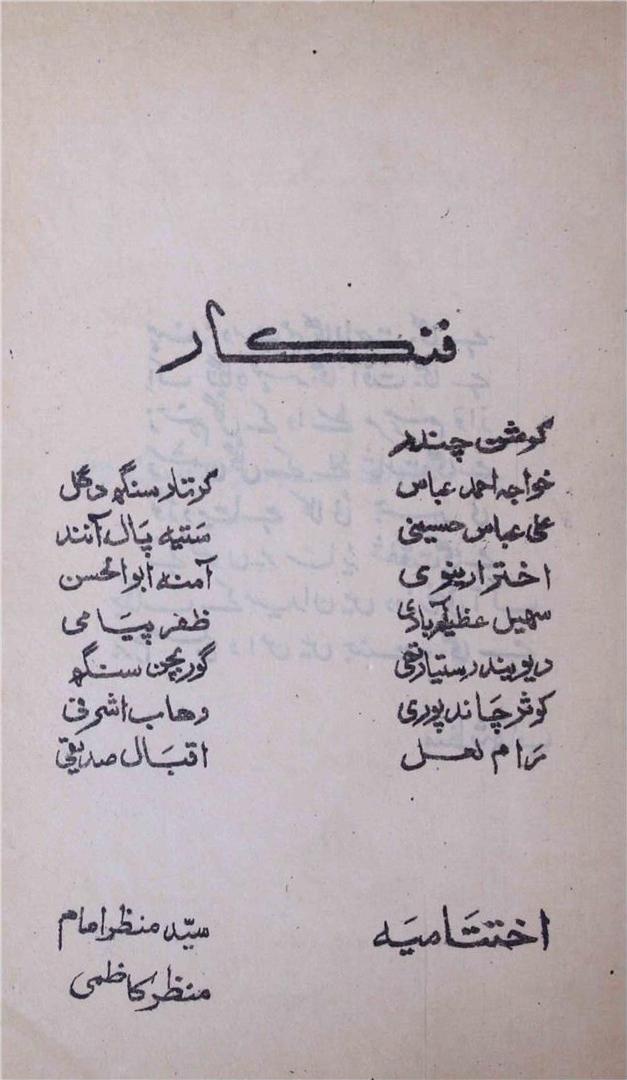 فنکار
کرشن چندر
خواجہ احمد عباس
علی عباس حسینی
اختر اورینوی
سہیل عظیم آبادی
دیویندر ستیارتھی
کوثر چاند پوری
رام لعل
کرتار سنگھ دگل
ستیہ پال آنند
آمنہ ابوالحسن
ظفر پیامی
گور بچن سنگھ
وهاب اشرفی
اقبال صدیقی
اختتامیہ
سیّد منظر امام
منظر کاظمی